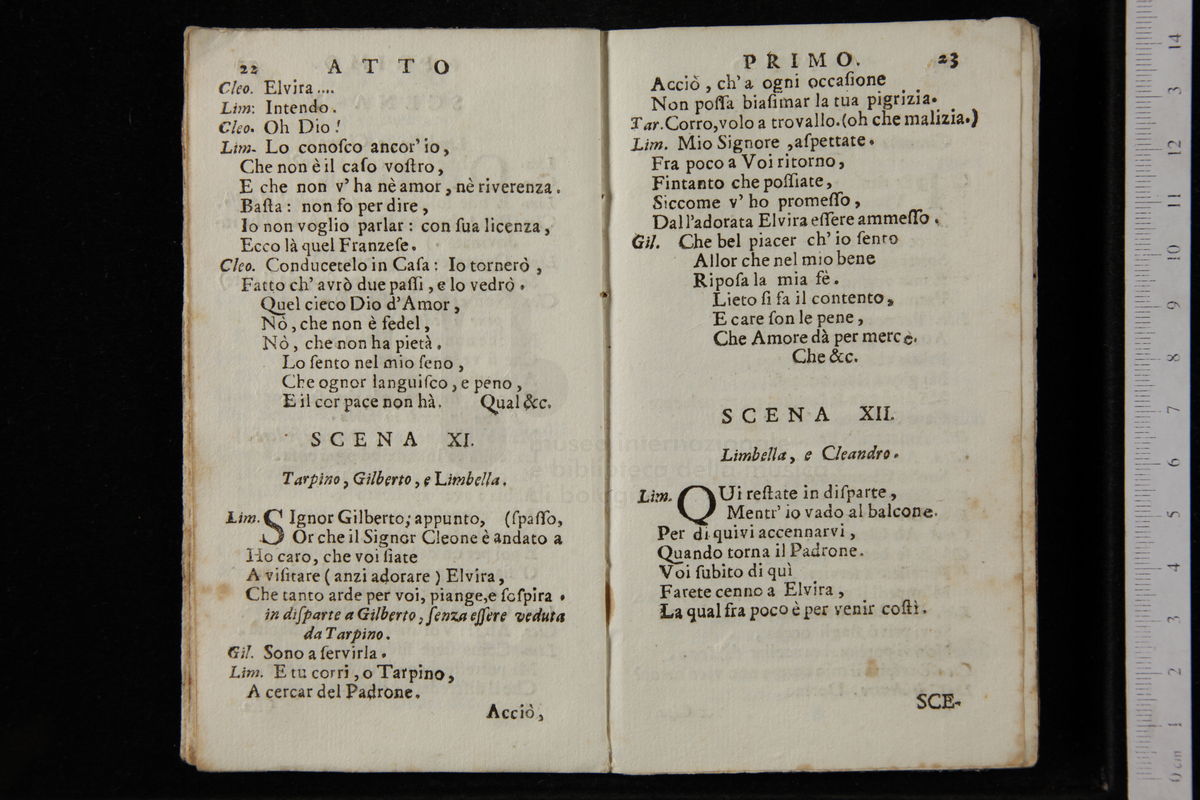 22 ATTO
Cleo. Elvira ....
Lim: Intendo.
Cleo. Oh Dio!
Lim. Lo conoſco ancor' io,
Che non è il caſo voſtro,
E che non v' ha nè amor, nè riverenza.
Baſta: non fo per dire,
Io non voglio parlar: con ſua licenza,
Ecco là quel Franzeſe.
Cleo. Conducetelo in Caſa: Io tornerò,
Fatto ch' avrò due paſſi, e lo vedrò.
Quel cieco Dio d'Amor,
Nò, che non è fedel,
Nò, che non ha pietà.
Lo ſento nel mio ſeno,
Che ognor languiſco, e peno,
E il cor pace non hà. Qual &c.
SCENA XI.
Tarpino, Gilberto, e Limbella.
Lim. SIgnor Gilberto, appunto, (ſpaſſo,
Or che il Signor Cleone è andato a
Ho caro, che voi ſiate
A viſitare (anzi adorare) Elvira,
Che tanto arde per voi, piange, e ſoſpira.
in diſparte a Gilberto, ſenza eſſere veduta
da Tarpino.
Gil. Sono a ſervirla.
Lim. E tu corri, o Tarpino,
A cercar del Padrone.
Acciò,
PRIMO. 23
Acciò, ch' a ogni occaſione
Non poſſa biaſimar la tua pigrizia.
Tar. Corro, volo a trovallo. (oh che malizia.)
Lim. Mio Signore, aſpettate.
Fra poco a Voi ritorno,
Fintanto che poſſiate,
Siccome v' ho promeſſo,
Dall'adorata Elvira eſſere ammeſſo.
Gil. Che bel piacer ch' io ſento
Allor che nel mio bene
Ripoſa la mia fè.
Lieto ſi fa il contento,
E care ſon le pene,
Che Amore dà per mercè.
Che &c.
SCENA XII.
Limbella, e Cleandro.
Lim. QUi reſtate in diſparte,
Mentr' io vado al balcone.
Per di quivi accennarvi,
Quando torna il Padrone.
Voi ſubito di quì
Farete cenno a Elvira,
La qual fra poco è per venir coſtì.
SCE-
museo internazionale
e biblioteca della musica
di bologna
14
3
12
11
10
9
8
7
6
5
4
3
2
1
0 cm